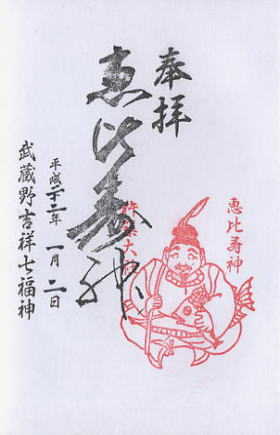 奉拝
恵比寿神
平成二十二年一月二日
武蔵野吉祥七福神
恵比寿神